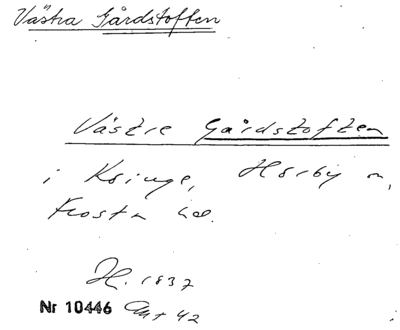 Västra Gårdstoften
Västre Gårdstoften
i Kringe, Hörby sn,
Frosta hd.
H. 1837
Nr 10446 Akt 42